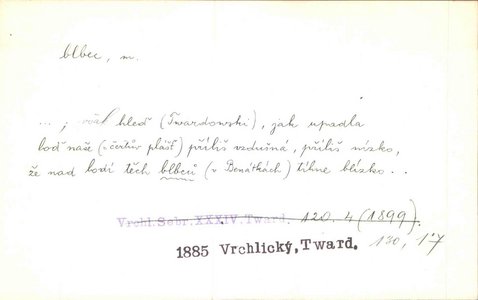 blbec, m.
... ; však hleď (Twardowski), jak upadla
loď naše (= čertův plášť) příliš vzdušná, příliš nízko,
že nad lodí těch blbců (v Benátkách) tihne blízko . .
Vrchl.Sebr.XXXIV.Tward. 120. 4 (1899).
1885 Vrchlický, Tward. 130, 17